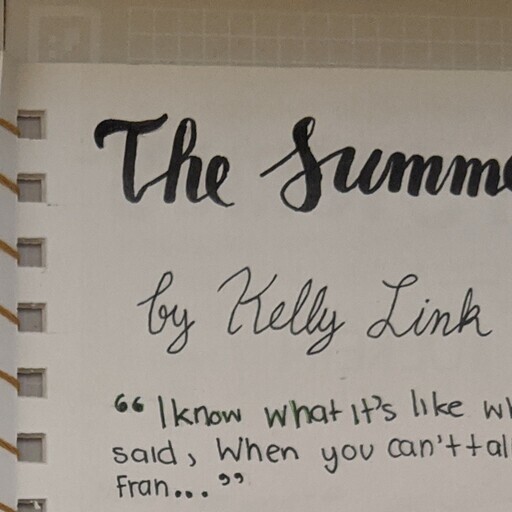 The Summe
by Kelly Link
“I know what it's like wh
said, When you can't tal
Fran...”